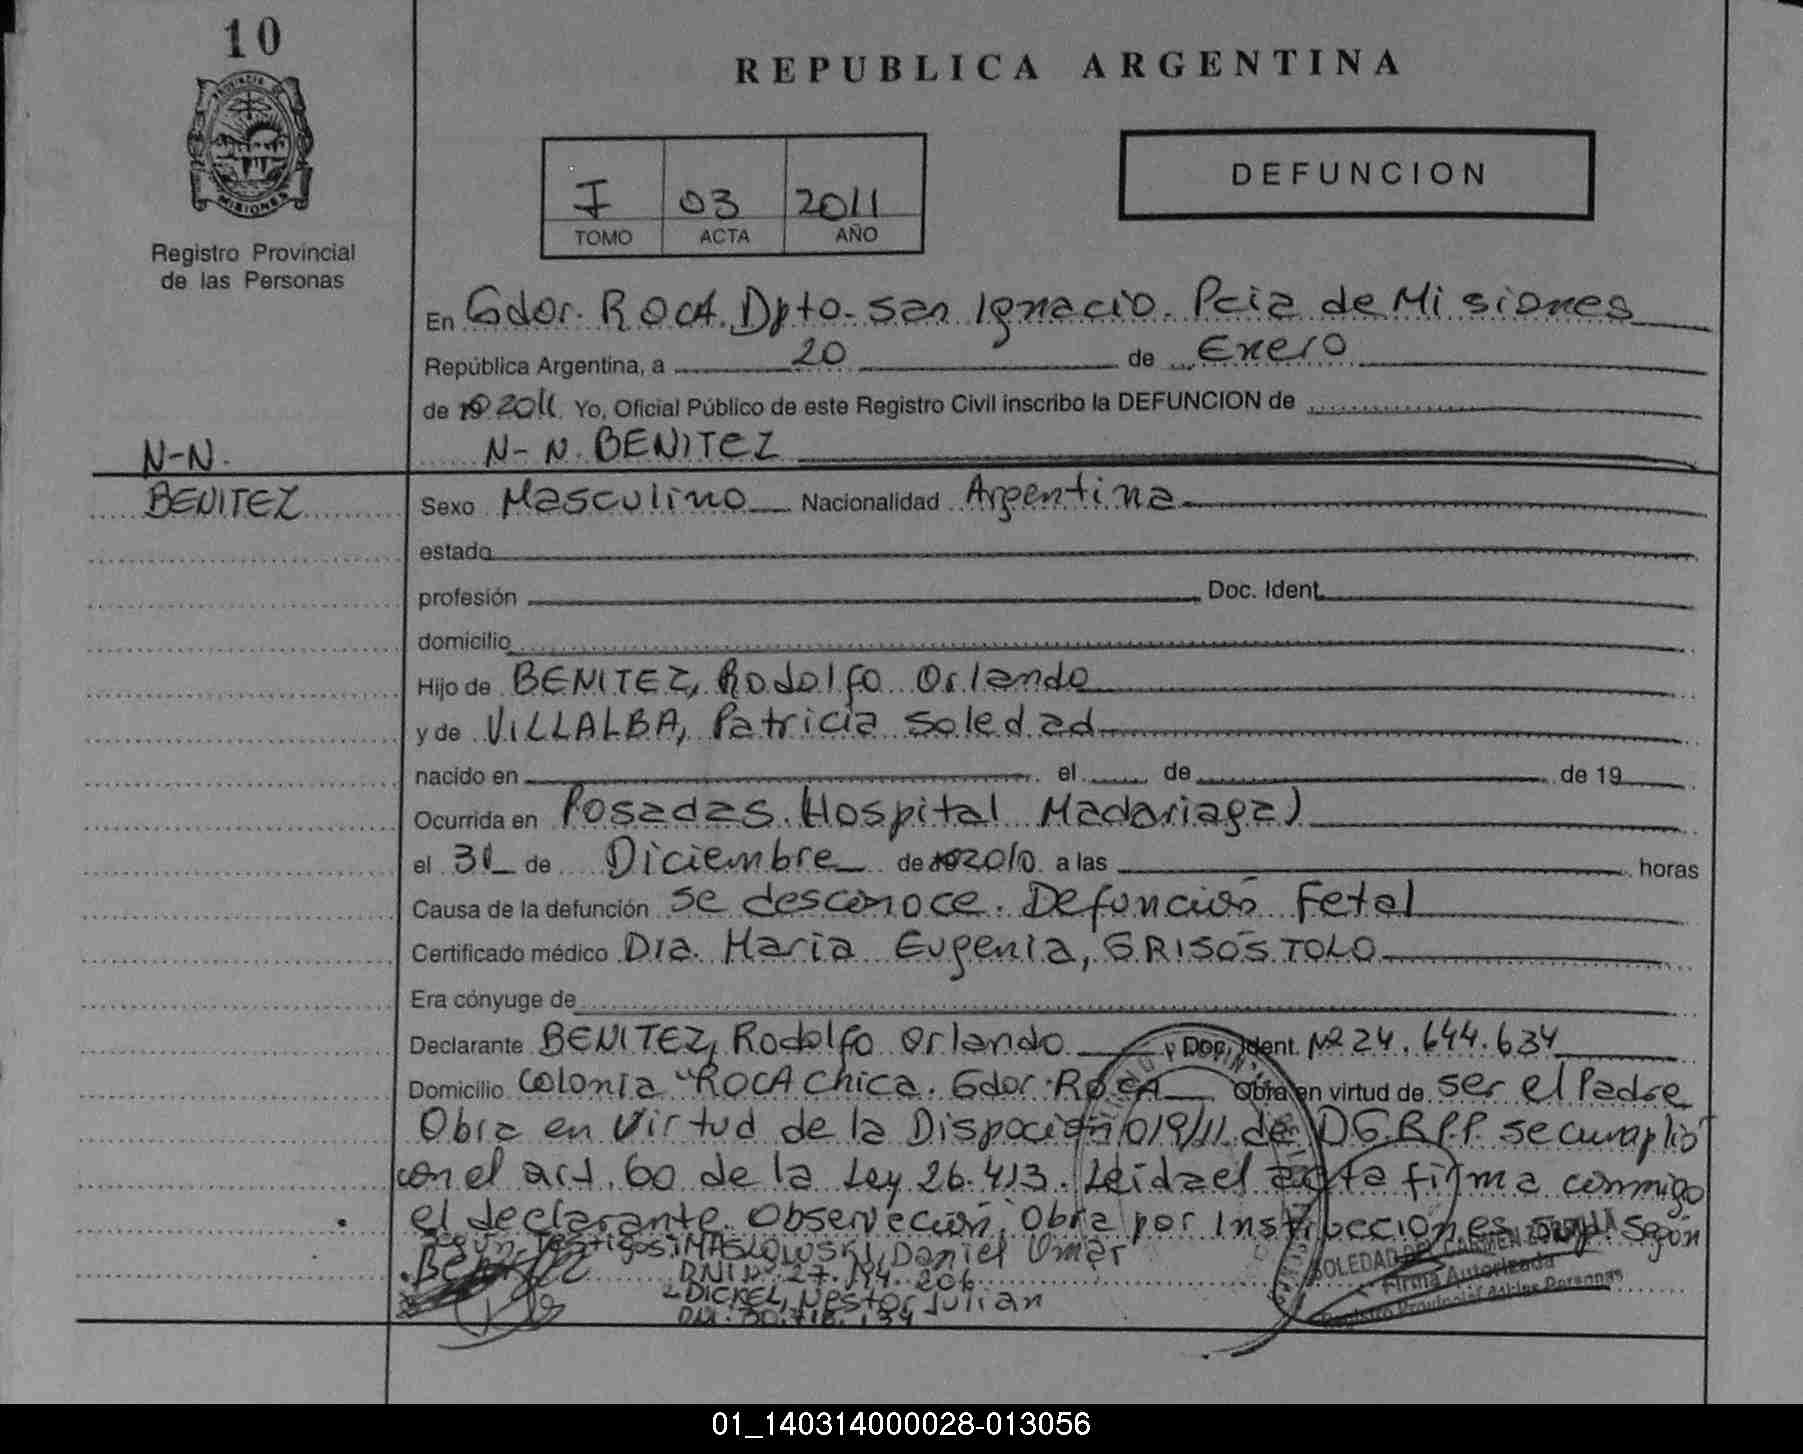 10
REPUBLICA ARGENTINA
PROVINCIA DE
MISIONES
Registro Provincial
de las Personas
I 03 2011
TOMO ACTA AÑO
DEFUNCION
En Gdor. ROCA. Dpto. San Ignacio. Pcia de Misiones
República Argentina, a 20 de Enero
de 2011. Yo, Oficial Público de este Registro Civil inscribo la DEFUNCION de
N-N.
N-N. BENITEZ
BENITEZ
Sexo Masculino Nacionalidad Argentina
estado
profesión Doc. Ident.
domicilio
Hijo de BENITEZ, Rodolfo Orlando
y de VILLALBA, Patricia Soledad
nacido en el de de 19
Ocurrida en Posadas. (Hospital Madariaga)
el 31 de Diciembre de 2010 a las horas
Causa de la defunción se desconoce. Defunción Fetal
Certificado médico Dra. Maria Eugenia, GRISÓSTOLO
Era cónyuge de
Declarante BENITEZ, Rodolfo Orlando Doc. Ident. Nº 24.644.634
Domicilio Colonia "ROCA Chica. Gdor. ROCA Obra en virtud de ser el Padre
Obra en Virtud de la Disposición 019/11 de DG.R.P.P. se cumplió
con el art. 60 de la Ley 26.413. Leida el acta firma conmigo
el declarante. Observación: Obra por Instrucciones Sup. Según
Testigos: MASLOWSKI, Daniel Omar
DNI Nº 27.
DICKEL, Nestor Julian
SOLEDAD DEL CARMEN
Firma Autorizada
Registro Provincial de las Personas
01_140314000028-013056